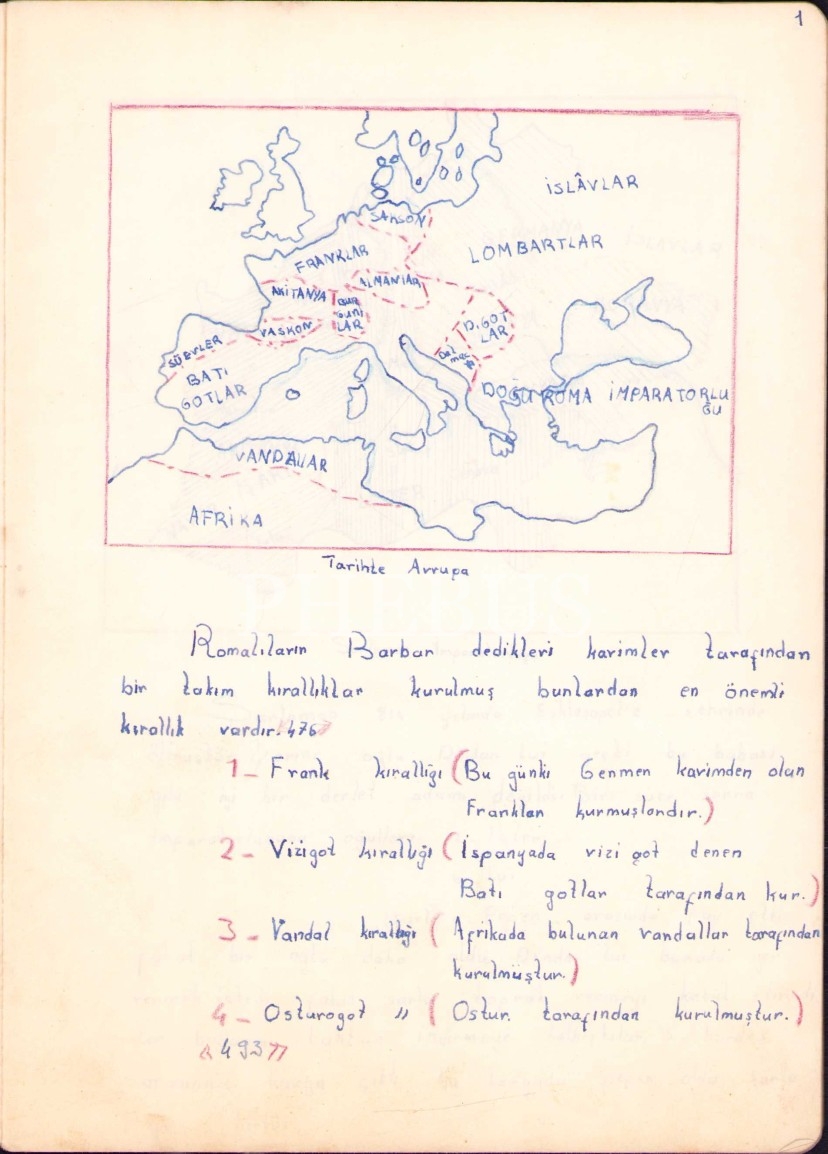 1
İSLÂVLAR
SAKSON
LOMBARTLAR
FRANKLAR
ALMANLAR
AKİTANYA
BUR
GUNT
LAR
VASKON
D.GOT
LAR
SÜEVLER
BATI
GOTLAR
DOĞU ROMA İMPARATORLU
ĞU
VANDALLAR
AFRİKA
Tarihte Avrupa
PHEBUS
Romalıların Barbar dedikleri kavimler tarafından
bir takım kırallıklar kurulmuş bunlardan en önemli
kırallık vardır. 476
1- Frank kırallığı (Bu günki Genmen kavimden olan
Franklar kurmuşlardır.)
2- Vizigot kırallığı (İspanyada vizi got denen
Batı gotlar tarafından kur.)
3- Vandal kırallığı (Afrikada bulunan vandallar tarafından
kurulmüştur.)
4- Osturogot " (Ostur. tarafından kurulmuştur.)
493